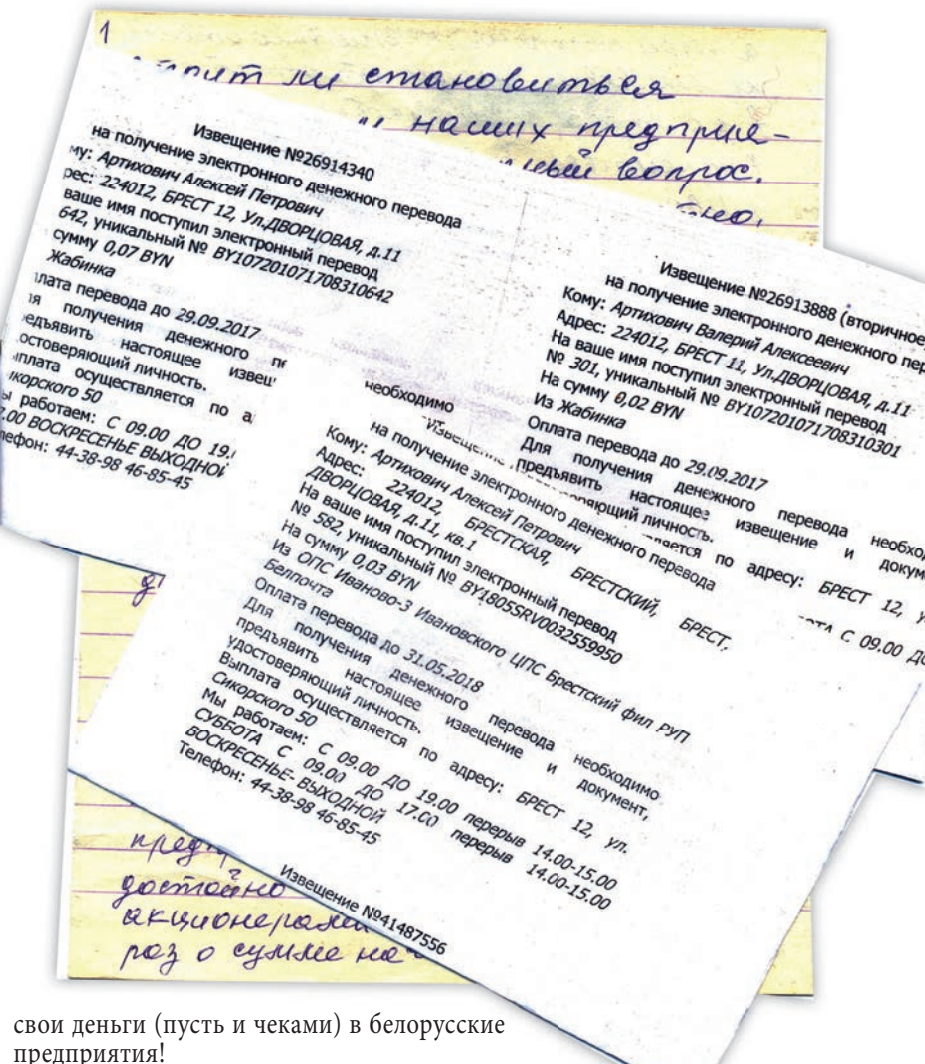 1
ли становиться
наших предприя-
вопрос.
Извещение №26914340
на получение электронного денежного перевода
му: Артихович Алексей Петрович
рес: 224012, БРЕСТ 12, Ул.ДВОРЦОВАЯ, д.11
ваше имя поступил электронный перевод
642, уникальный № BY107201071708310642
сумму 0,07 BYN
Жабинка
лата перевода до 29.09.2017
я получения денежного пе
едъявить настоящее извещ
остоверяющий личность.
плата осуществляется по а
икорского 50
ы работаем: С 09.00 ДО 19.
.00 ВОСКРЕСЕНЬЕ ВЫХОДНОЙ
лефон: 44-38-98 46-85-45
необходимо
Извещение №26913888 (вторичное
на получение электронного денежного пер
Кому: Артихович Валерий Алексеевич
Адрес: 224012, БРЕСТ 11, Ул.ДВОРЦОВАЯ, д.11
На ваше имя поступил электронный перевод
№ 301, уникальный № BY107201071708310301
На сумму 0,02 BYN
Из Жабинка
Оплата перевода до 29.09.2017
Для получения денежного перевода необход
предъявить настоящее извещение и докум
оверяющий личность.
ляется по адресу: БРЕСТ 12, у
ОТА С 09.00 ДО
Извещение
на получение электронного денежного перевода
Кому: Артихович Алексей Петрович
Адрес: 224012, БРЕСТСКАЯ, БРЕСТСКИЙ, БРЕСТ,
ДВОРЦОВАЯ, д.11, кв.1
На ваше имя поступил электронный перевод
№ 582, уникальный № BY18055RV0032559950
На сумму 0,03 BYN
Из ОПС Иваново-3 Ивановского ЦПС Брестский фил РУП
Белпочта
Оплата перевода до 31.05.2018
Для получения денежного перевода необходимо
предъявить настоящее извещение и документ,
удостоверяющий личность.
Выплата осуществляется по адресу: БРЕСТ 12, ул.
Сикорского 50
Мы работаем: С 09.00 ДО 19.00 перерыв 14.00-15.00
СУББОТА С 09.00 ДО 17.00 перерыв 14.00-15.00
ВОСКРЕСЕНЬЕ- ВЫХОДНОЙ
Телефон: 44-38-98 46-85-45
Извещение №41487556
достойно
акционерами
раз о сумме
свои деньги (пусть и чеками) в белорусские
предприятия!